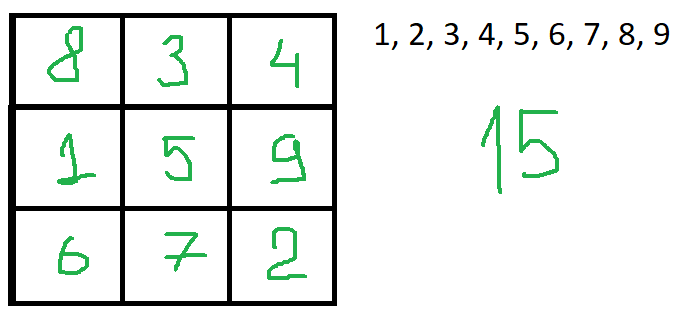 8 3 4
1 5 9
6 7 2
1, 2, 3, 4, 5, 6, 7, 8, 9
15